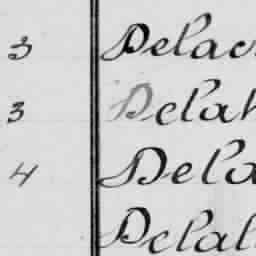 3 Delac
3 Delah
4 Dela
Delal